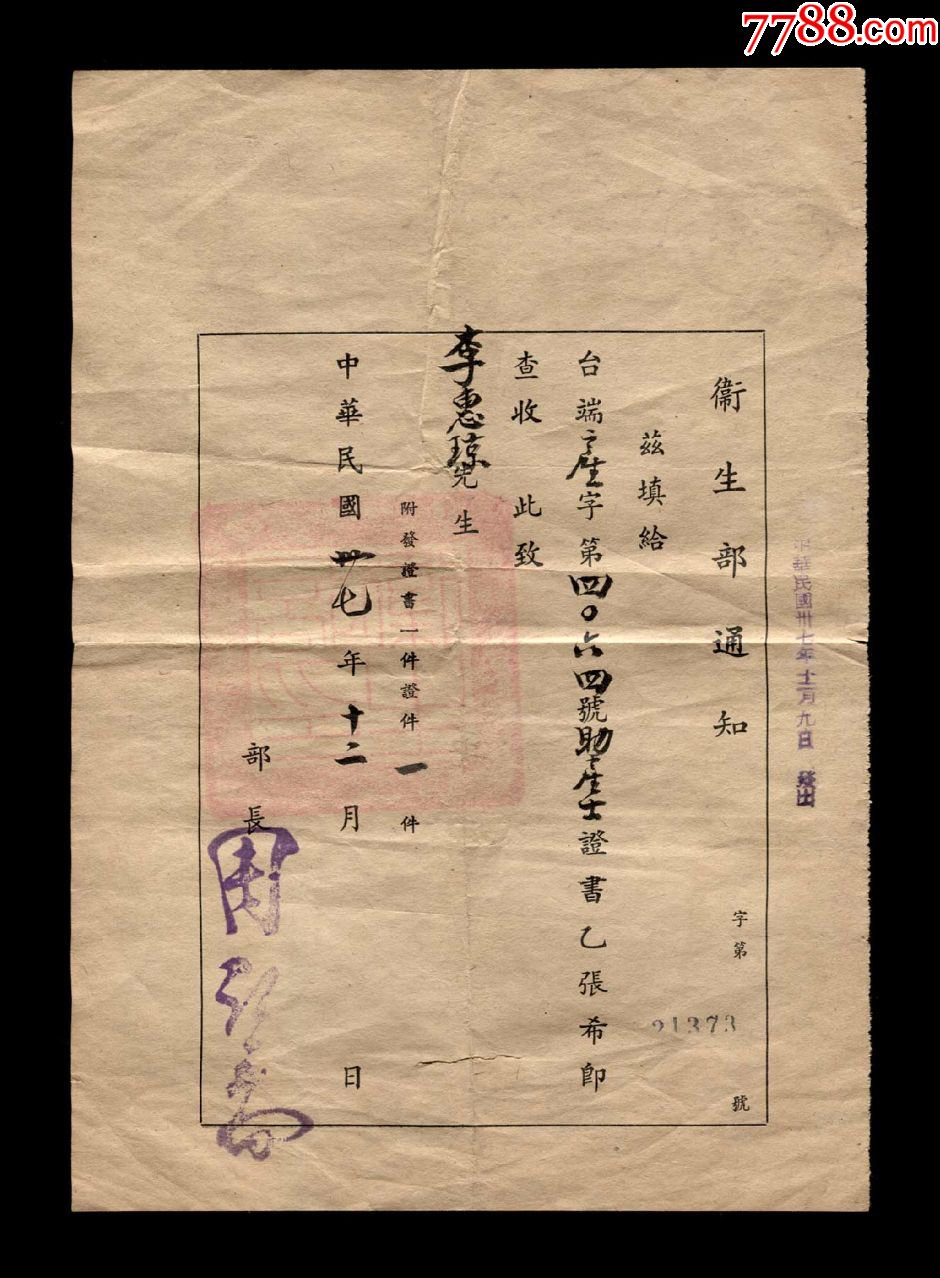 7788.com
中華民國卅七年十二月九日 發出
衞生部通知
字第21373號
茲填給
台端產字第四〇六四號助產士證書乙張希卽
查收 此致
李惠琼先生
附發證書一件證件一件
中華民國卅七年十二月 日
部長